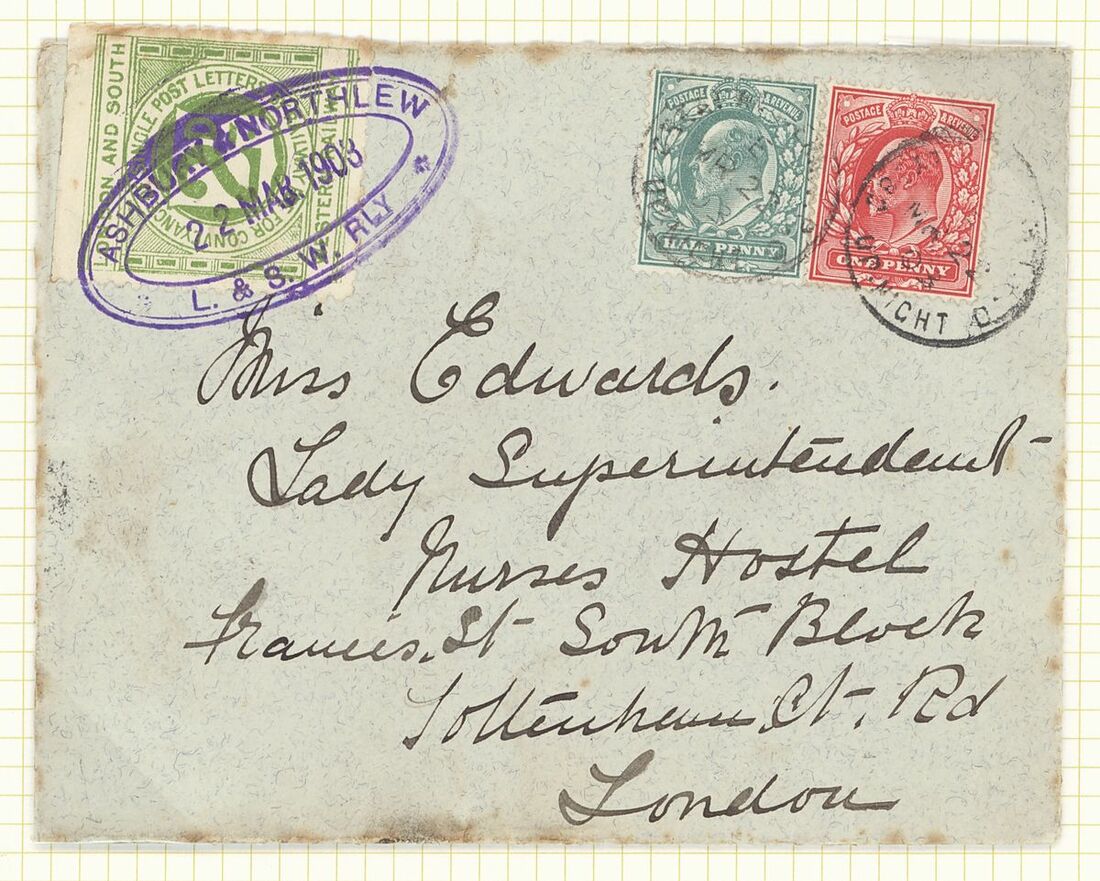 LONDON AND SOUTH
SINGLE POST LETTERS
2
FOR CONVEYANCE
ASHBURY & NORTHLEW
22 MAR 1903
L. & S. W. RLY
POSTAGE & REVENUE
HALF PENNY
POSTAGE & REVENUE
ONE PENNY
Miss Edwards.
Lady Superintendent
Nurses Hostel
Francis. St South Block
Tottenham. Ct. Rd
London